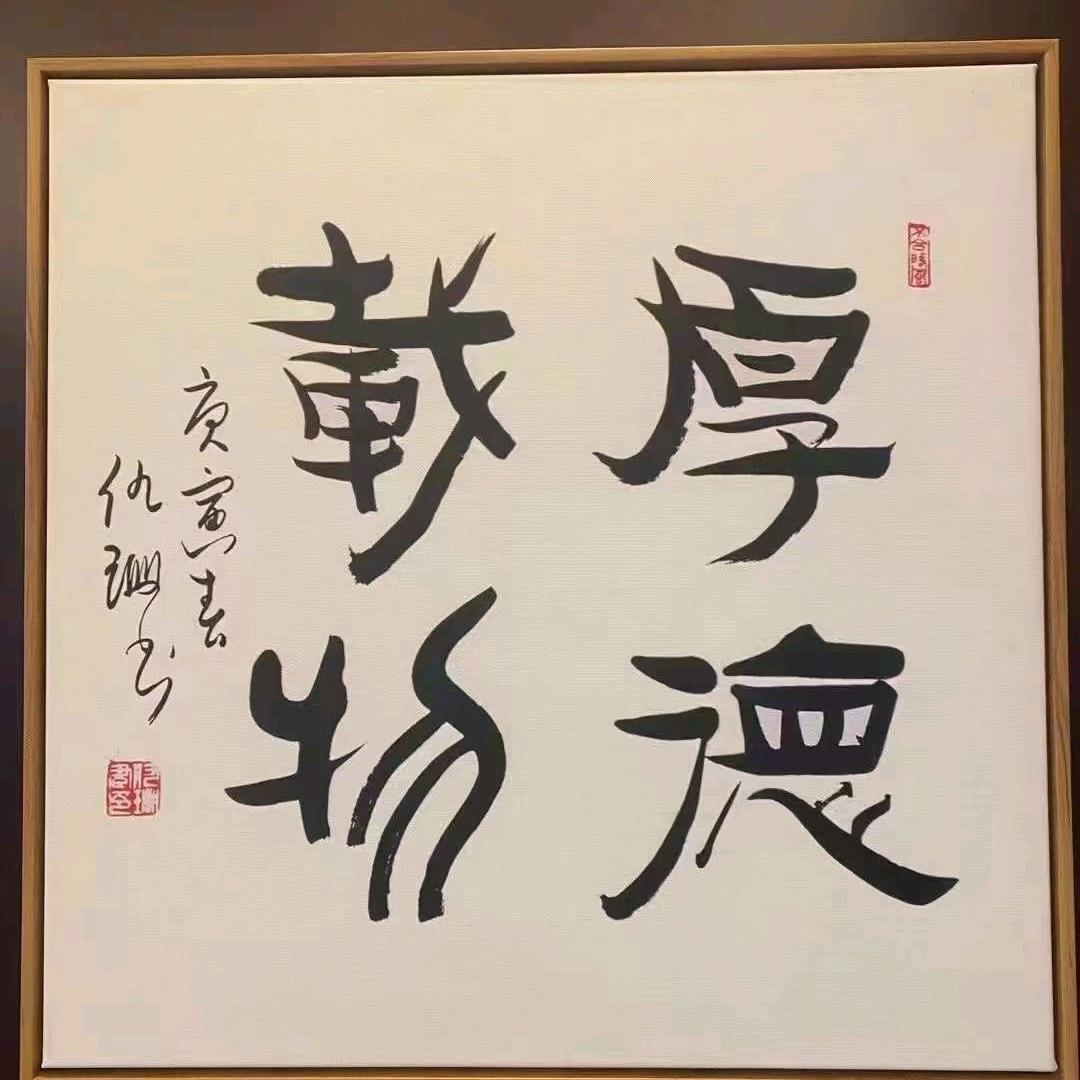 厚德
載物
庚寅春
仇珊书